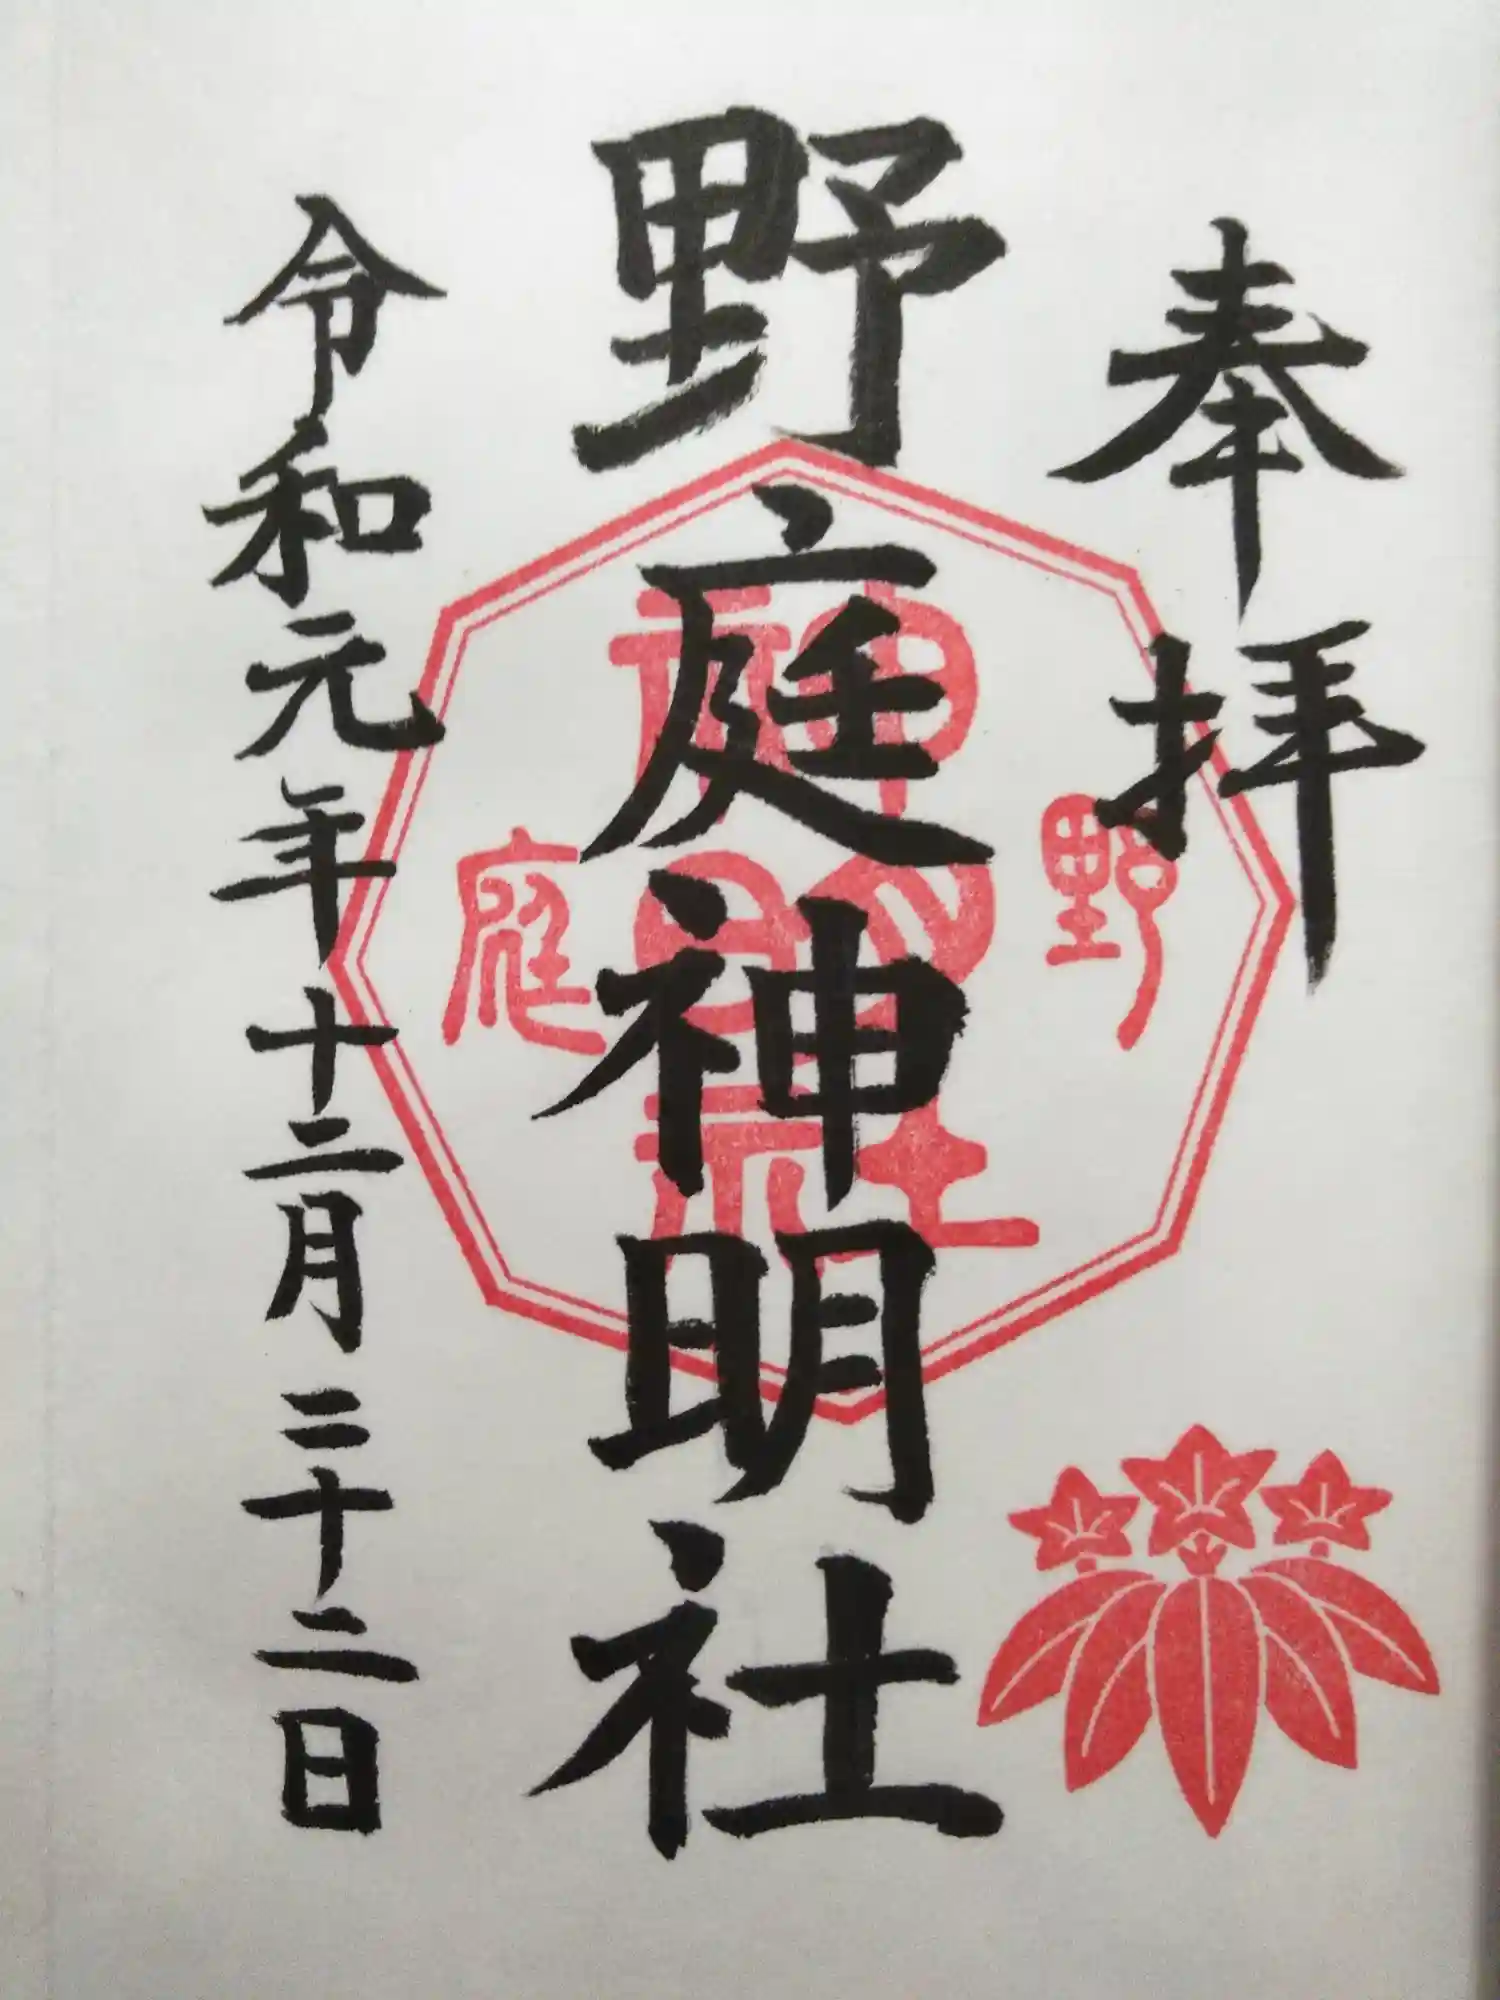 奉拝
野庭神明社
令和元年十二月二十二日
野
神明社
庭